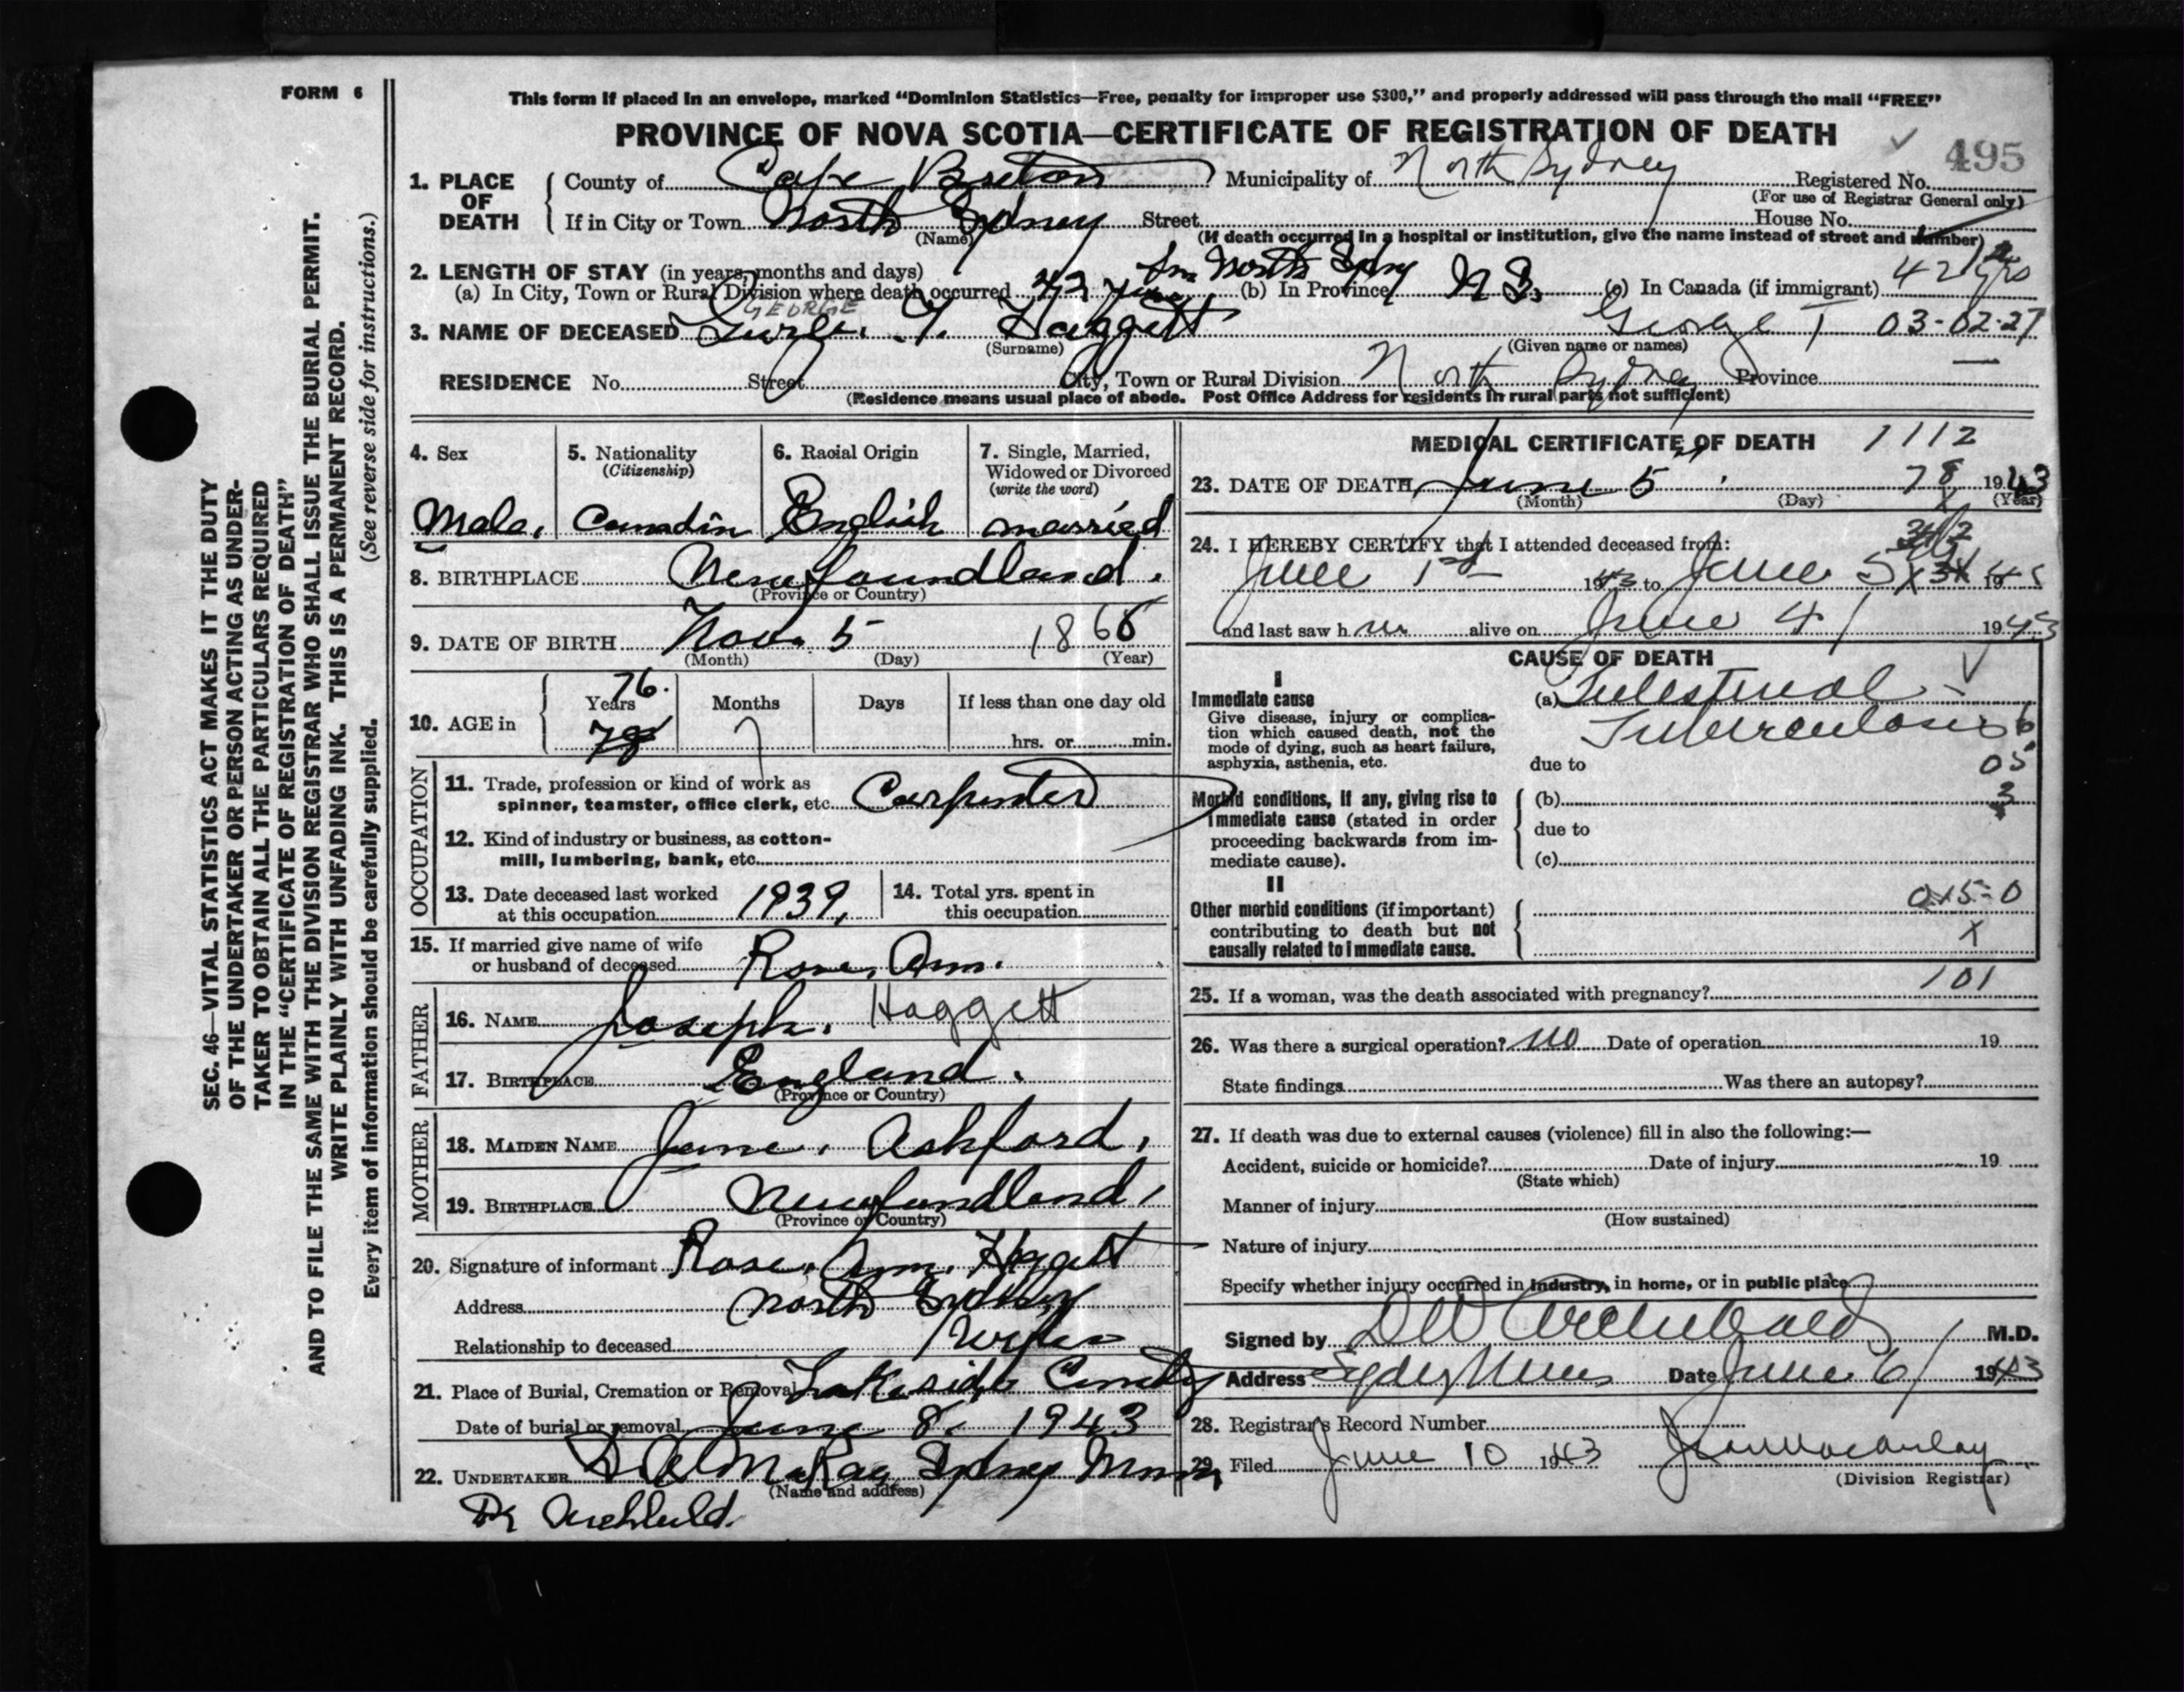 FORM 6
This form if placed in an envelope, marked "Dominion Statistics—Free, penalty for improper use $300," and properly addressed will pass through the mail "FREE"
PROVINCE OF NOVA SCOTIA—CERTIFICATE OF REGISTRATION OF DEATH
495
1. PLACE OF DEATH County of Cape Breton Municipality of North Sydney Registered No.
(For use of Registrar General only)
If in City or Town North Sydney Street House No.
(Name) (If death occurred in a hospital or institution, give the name instead of street and number)
2. LENGTH OF STAY (in years, months and days) In North Sydney
(a) In City, Town or Rural Division where death occurred 42 years (b) In Province N S. (c) In Canada (if immigrant) 42 yrs
GEORGE
3. NAME OF DECEASED T. Haggett George T 03-02-27
(Surname) (Given name or names)
RESIDENCE No. Street City, Town or Rural Division North Sydney Province —
(Residence means usual place of abode. Post Office Address for residents in rural parts not sufficient)
4. Sex 5. Nationality (Citizenship) 6. Racial Origin 7. Single, Married, Widowed or Divorced (write the word)
Male. Canadin English married
8. BIRTHPLACE Newfoundland.
(Province or Country)
9. DATE OF BIRTH Nov. 5 1866
(Month) (Day) (Year)
10. AGE in Years 76. Months 7 Days If less than one day old hrs. or min.
OCCUPATION
11. Trade, profession or kind of work as spinner, teamster, office clerk, etc. Carpenter
12. Kind of industry or business, as cotton-mill, lumbering, bank, etc.
13. Date deceased last worked at this occupation 1939. 14. Total yrs. spent in this occupation
15. If married give name of wife or husband of deceased Rose. Ann.
FATHER
16. NAME Joseph. Haggett
17. BIRTHPLACE England.
(Province or Country)
MOTHER
18. MAIDEN NAME Jane. Ashford.
19. BIRTHPLACE Newfundland.
(Province or Country)
20. Signature of informant Rose. Ann. Haggett
Address North Sydney
Relationship to deceased Wife
21. Place of Burial, Cremation or Removal Lakeside Cemetry
Date of burial or removal June 8. 1943
22. UNDERTAKER McKay Sydney Mines
(Name and address)
Dr Archbald.
MEDICAL CERTIFICATE OF DEATH 1112
23. DATE OF DEATH June 5 78 1943
(Month) (Day) (Year)
24. I HEREBY CERTIFY that I attended deceased from:
June 1st 1943 to June 5 19
and last saw h im alive on June 4 1943
CAUSE OF DEATH
I
Immediate cause (a) Intestinal
Give disease, injury or complication which caused death, not the mode of dying, such as heart failure, asphyxia, asthenia, etc.
Tuberculosis 6
due to 05
Morbid conditions, if any, giving rise to immediate cause (stated in order proceeding backwards from immediate cause). (b) 3
due to
(c)
II
Other morbid conditions (if important) contributing to death but not causally related to immediate cause. 0x5-0
X
25. If a woman, was the death associated with pregnancy? 101
26. Was there a surgical operation? no Date of operation 19
State findings Was there an autopsy?
27. If death was due to external causes (violence) fill in also the following:—
Accident, suicide or homicide? Date of injury 19
(State which)
Manner of injury
(How sustained)
Nature of injury
Specify whether injury occurred in industry, in home, or in public place
Signed by DW Archibald M.D.
Address Sydney Mines Date June 6 1943
28. Registrar's Record Number
29. Filed June 10 1943
(Division Registrar)
SEC. 46—VITAL STATISTICS ACT MAKES IT THE DUTY
OF THE UNDERTAKER OR PERSON ACTING AS UNDER-
TAKER TO OBTAIN ALL THE PARTICULARS REQUIRED
IN THE "CERTIFICATE OF REGISTRATION OF DEATH"
AND TO FILE THE SAME WITH THE DIVISION REGISTRAR WHO SHALL ISSUE THE BURIAL PERMIT.
WRITE PLAINLY WITH UNFADING INK. THIS IS A PERMANENT RECORD.
Every item of information should be carefully supplied. (See reverse side for instructions.)